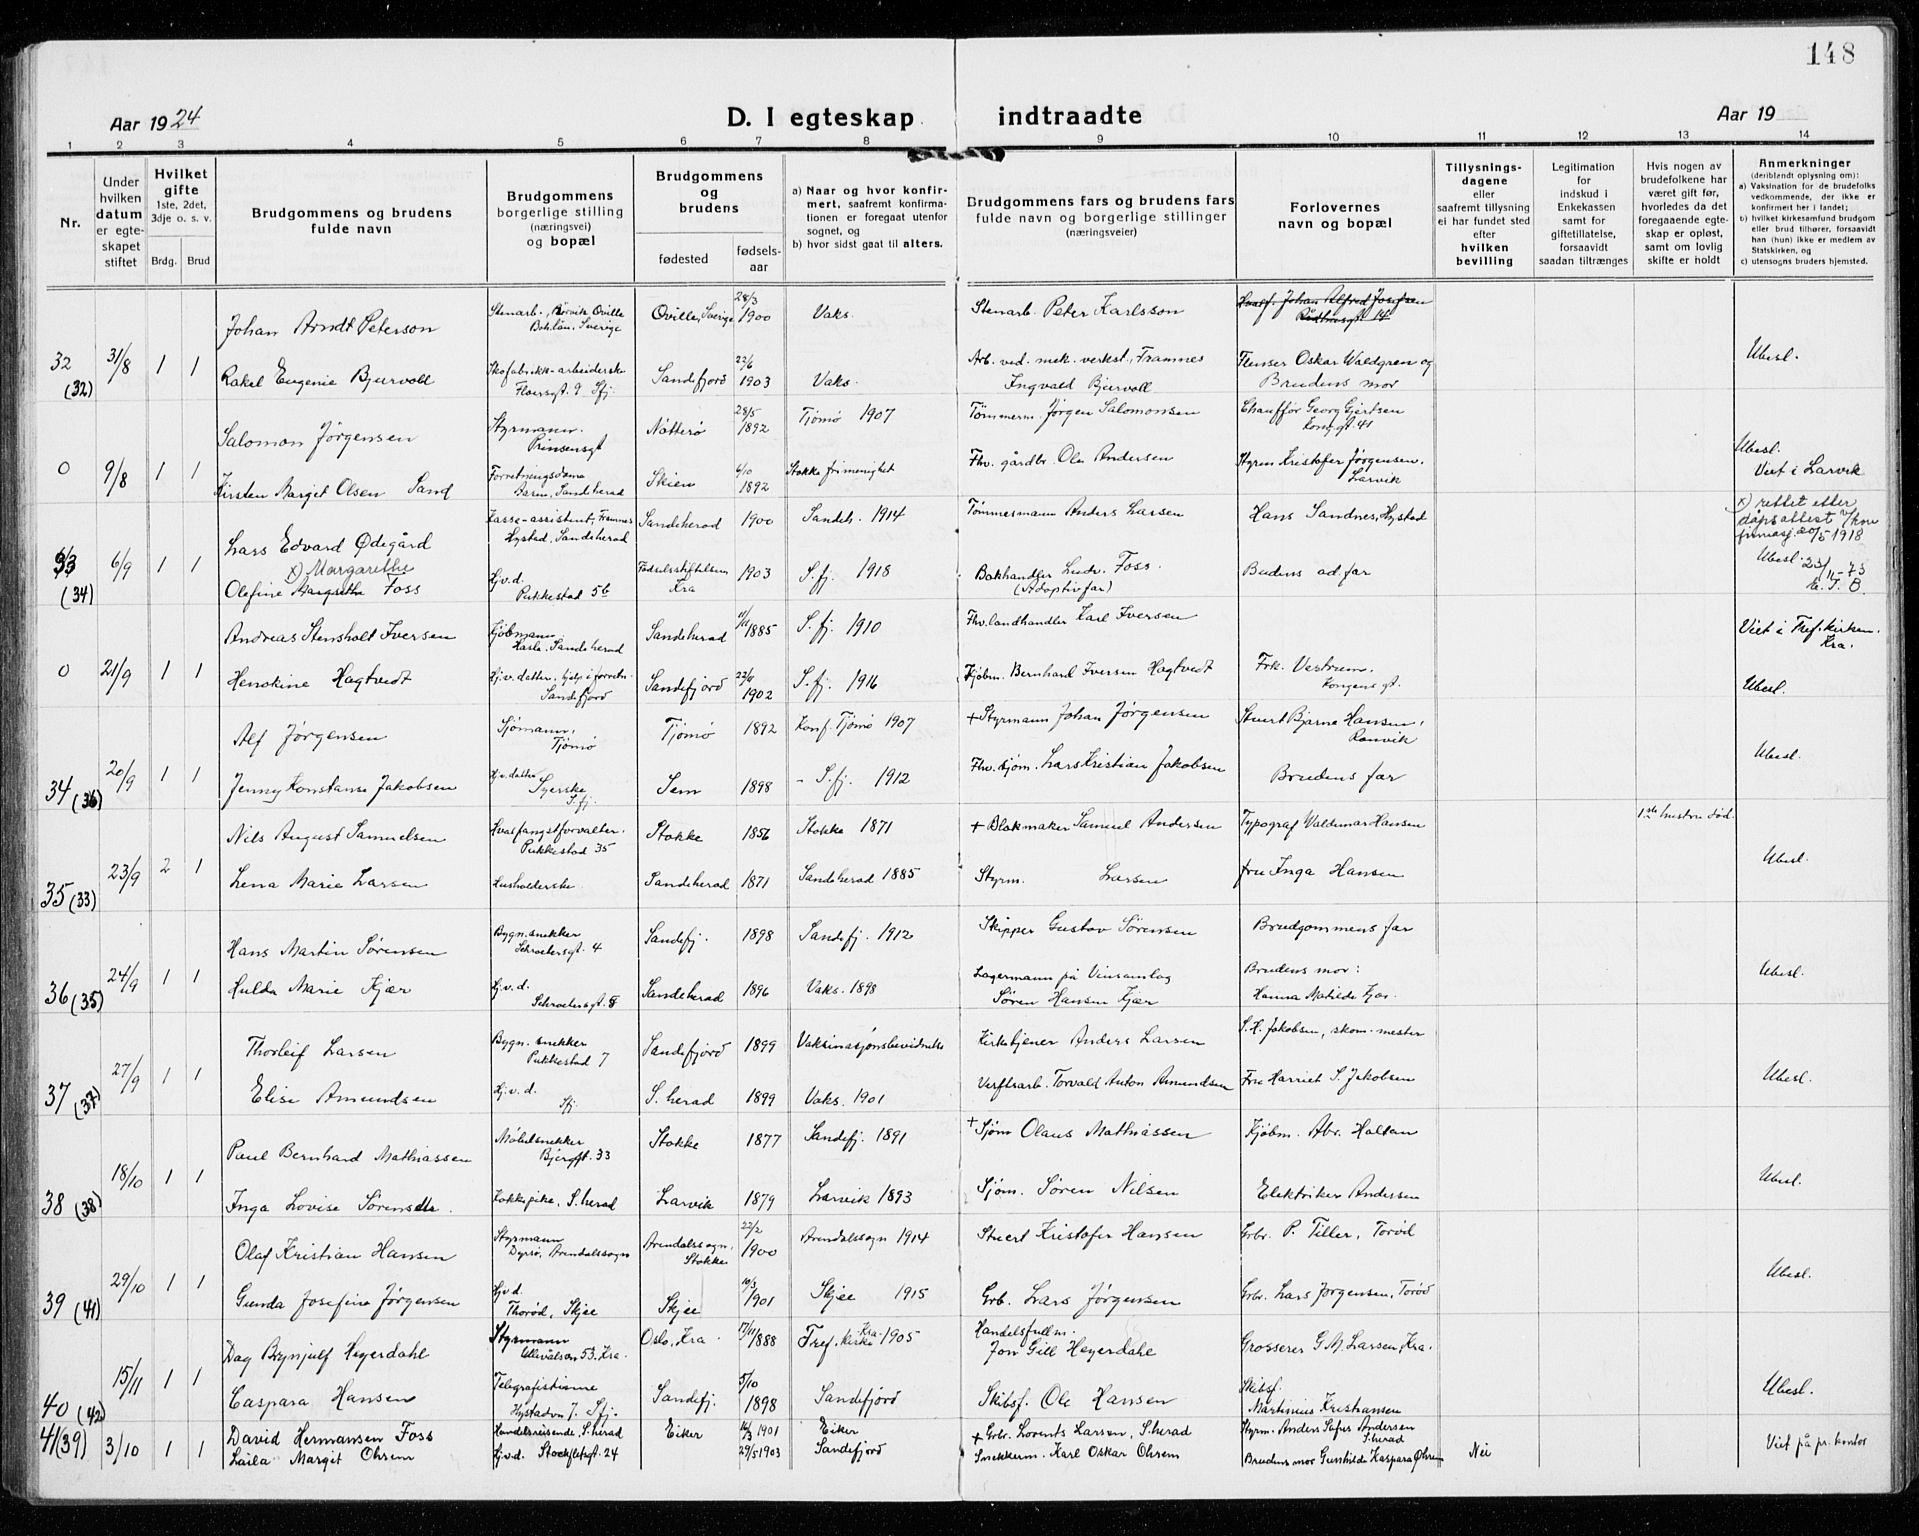 148
Aar 1924
D. I egteskap indtraadte
Aar 19
1 2 3 4 5 6 7 8 9 10 11 12 13 14
Nr.
Under hvilken datum er egteskapet stiftet
Hvilket gifte 1ste, 2det, 3dje o. s. v.
Brdg. Brud
Brudgommens og brudens fulde navn
Brudgommens borgerlige stilling (næringsvei) og bopæl
Brudgommens og brudens
fødested
fødselsaar
a) Naar og hvor konfirmert, saafremt konfirmationen er foregaat utenfor sognet, og
b) hvor sidst gaat til alters.
Brudgommens fars og brudens fars fulde navn og borgerlige stillinger (næringsveier)
Forlovernes navn og bopæl
Tillysningsdagene eller saafremt tillysning ei har fundet sted efter hvilken bevilling
Legitimation for indskud i Enkekassen samt for giftetillatelse, forsaavidt saadan tiltrænges
Hvis nogen av brudefolkene har været gift før, hvorledes da det foregaaende egteskap er opløst, samt om lovlig skifte er holdt
Anmerkninger (deriblandt oplysning om):
a) Vaksination for de brudefolks vedkommende, der ikke er konfirmert her i landet;
b) hvilket kirkesamfund brudgom eller brud tilhører, forsaavidt han (hun) ikke er medlem av Statskirken, og
c) utensogns bruders hjemsted.
Johan Arndt Peterson Stenarb., Oville Bohlän, Sverige Oville, Sverige 28/3 1900 Vaks. Stenarb. Peter Karlsson Johan Alfred Josefsen Rådhusgt 14
32 (32) 31/8 1 1 Rakel Eugenie Bjurvoll Skofabrikk-arbeiderske 9 Sfj. Sandefjord 23/6 1903 Vaks. Arb. ved. mek. verkst., Framnes Ingvald Bjurvoll Flenser Oskar Waldgren og Brudens mor Ubesl.
Salomon Jørgensen Styrmann. Prinsensgt Nøtterø 28/5 1892 Tjømø 1907 Tømmerm. Jørgen Salomonsen Chauffør Georg Gjertsen Kongsgt 41
0 9/8 1 1 Kirsten Margit Olsen Sand Forretningsdame Sandeherad Skien 6/10 1892 Stokke frimenighet Fhv. gårdbr. Ole Andersen Styrm Kristofer Jørgensen, Larvik Ubesl. Viet i Larvik
Lars Edvard Ødegård Kasse-assistent, Framnes Hystad, Sandeherad Sandeherad 1900 Sandeh. 1914 Tømmermann Anders Larsen Hans Sandnes, Hystad x) rettet etter dåpsattest 20/5 1918
33 (34) 6/9 1 1 x) Margarethe Olefine Margretha Foss Hj.v.d. Pukkestad 56 Fødselsstiftelsen Kra 1903 S.fj. 1918 Bokhandler Ludv. Foss. (Adoptivfar) Budens ad. far Ubesl. 23/11-73 E. T. B.
Andreas Stensholt Iversen Kjøbmann Hasle, Sandeherad Sandeherad 11/11 1885 S.fj. 1910 Fhv. landhandler Karl Iversen Viet i Tref.kirken. Kra.
0 21/9 1 1 Henokine Hagtvedt Hj.v.datter, hjelp i forretn. Sandefjord Sandefjord 23/6 1902 S.fj. 1916 Kjøbm. Bernhard Iversen Hagtvedt Frk. Vestrum. Kongensgt. Ubesl.
Alf Jørgensen Sjømann, Tjømø Tjømø 1892 Konf. Tjømø 1907 + Styrmann Johan Jørgensen Stuert Bjarne Hansen, Ranvik
34 (36) 20/9 1 1 Jenny Konstanse Jakobsen Hj.v.datter Syerske S.fj. Sem 1898 - S.fj. 1912 Fhv. sjøm. Lars Kristian Jakobsen Brudens far Ubesl.
Nils August Samuelsen Hvalfangstforvalter. Pukkestad 35 Stokke 1856 Stokke 1871 + Blokmaker Samuel Andersen Typograf Waldemar Hansen 1ste hustru død.
35 (33) 23/9 2 1 Lena Marie Larsen Husholderske. Sandeherad 1871 Sandeherad 1885 Styrm. Larsen fru Inga Hansen Ubesl.
Hans Martin Sørensen Bygn.snekker Schroetersgt. 4 Sandefj. 1898 Sandefj. 1912 Skipper Gustav Sørensen Brudgommens far
36 (35) 24/9 1 1 Hulda Marie Kjær Hj.v.d. Schroetersgt. 8 Sandeherad 1896 Vaks. 1898 Lagermann på Vinsamlag Søren Hansen Kjær Brudens mor: Hanna Matilde Kjær. Ubesl.
Thorleif Larsen Bygn. snekker Pukkestad 7 Sandefjord 1899 Vaksinasjonsbevidnelse Kirketjener Anders Larsen S.H. Jakobsen, skom.-mester
37 (37) 27/9 1 1 Elise Amundsen Hj.v.d. Sfj. S. herad 1899 Vaks. 1901 Verftsarb. Torvald Anton Amundsen Fru Harriet S. Jakobsen Ubesl.
Paul Bernhard Mathiassen Møbelsnekker Bjergt. 33 Stokke 1877 Sandefj. 1891 + Sjøm Olaus Mathiassen Kjøbm. Abr. Holtan
38 (38) 18/10 1 1 Inga Lovise Sørensen. Kokkepike, S.herad Larvik 1879 Larvik 1893 Sjøm. Søren Nilsen Elektriker Andersen Ubesl.
Olaf Kristian Hansen Styrmann Dyrsø, Arendalssogn Arendalssogn, Stokke 22/2 1900 Arendalssogn 1914 Stuert Kristofer Hansen Grbr. P. Tiller, Torød
39 (41) 29/10 1 1 Gunda Josefine Jørgensen Hj.v.d. Thorød, Skjee Skjee 10/3 1901 Skjee 1915 Grb. Lars Jørgensen Grbr. Lars Jørgensen, Torød Ubesl.
Dag Brynjulf Heyerdahl Styrmann Ullevålsvn 53. Kra. Oslo, Kra. 17/11 1888 Tref. kirke Kra. 1905 Handelsfullm. Jon Gill Heyerdahl Grosserer G. M. Larsen, Kra.
40 (42) 15/11 1 1 Caspara Hansen Telegrafistinne Hystadvn 7. Sfj. Sandefj. 5/10 1898 Sandefjord Skibsf. Ole Hansen Skibsf. Martinius Kristiansen Ubesl.
41 (39) 3/10 1 1 David Hermansen Foss Handelsreisende S.herad Eiker 16/3 1901 Eiker + Grbr. Lorents Larsen, S.herad Styrm. Anders Andersen S.herad Viet på pr. kontor
Laila Margit Ohrem Hj.v.d. Stockfletsgt. 24 29/5 1903 Sandefjord Snekkerm. Karl Oskar Ohrem Brudens mor Gunhilda Kaspara Øhrem Nei